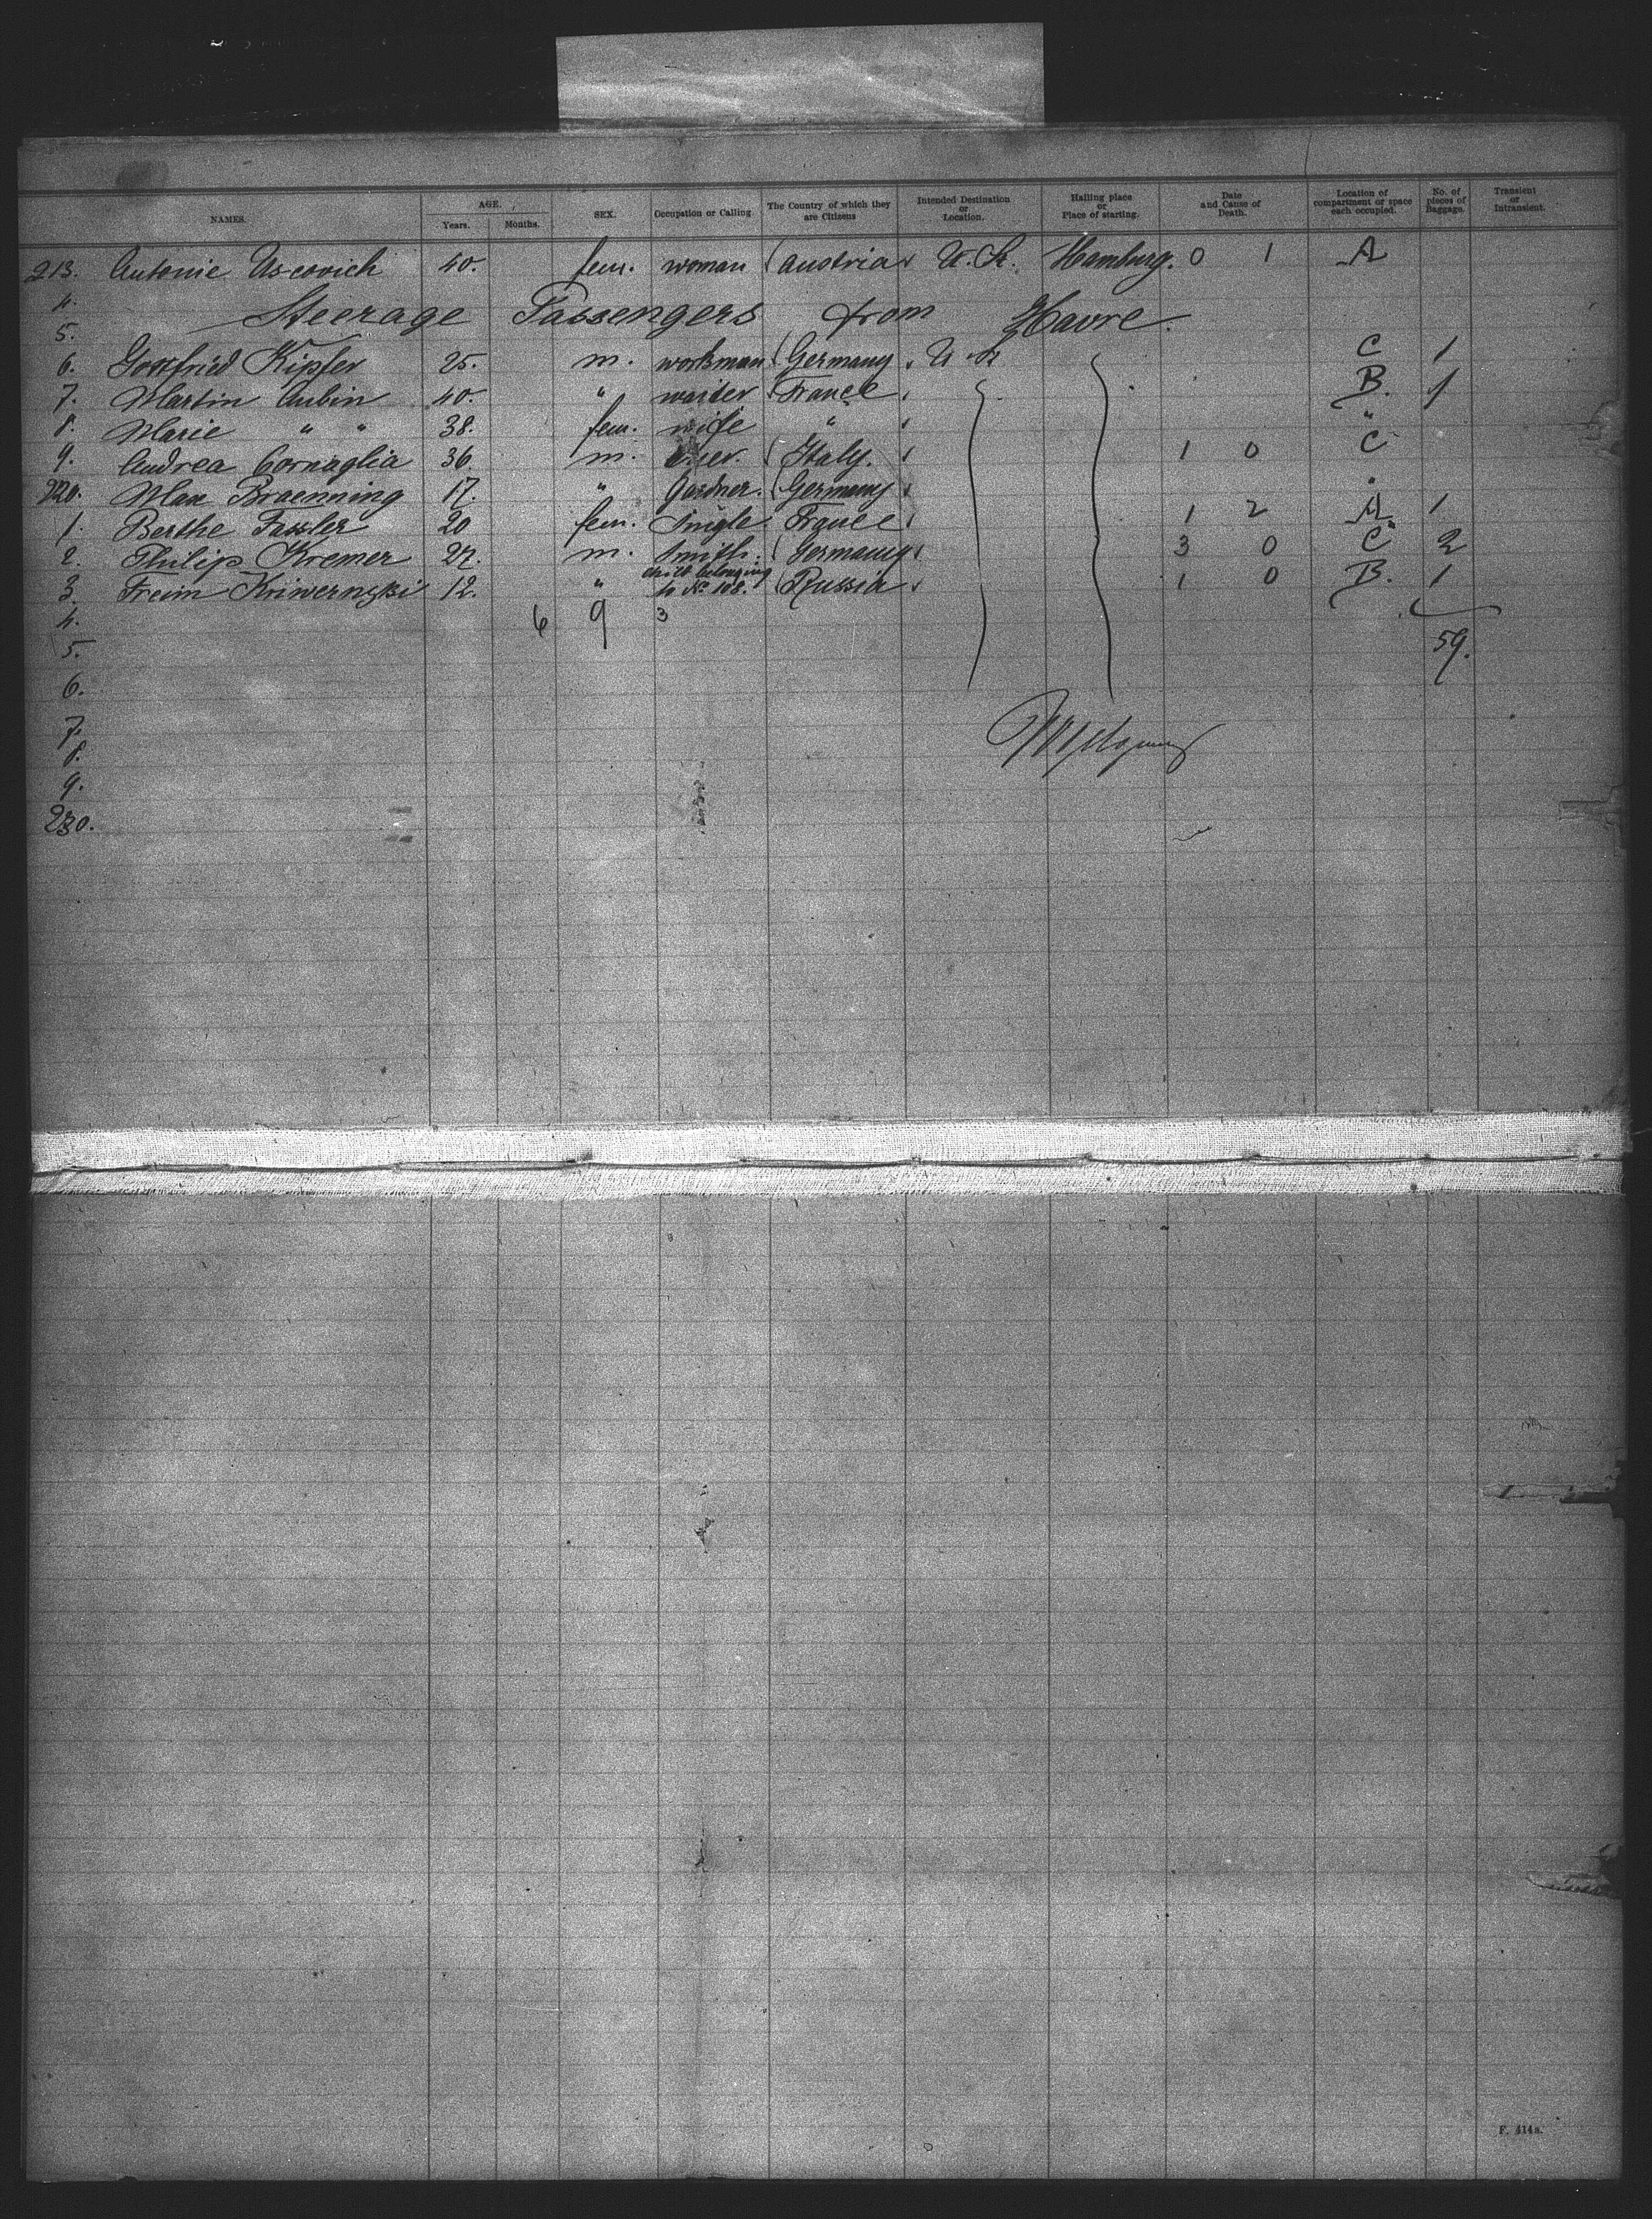 NAMES. AGE. Years. Months. SEX. Occupation or Calling The Country of which they are Citizens Intended Destination or Location. Hailing place or Place of starting. Date and Cause of Death. Location of compartment or space each occupied. No. of pieces of Baggage. Transient or Intransient.
213. Antonie Uscovich 40. fem. woman Austria Hamburg. 0 1 A
4. Steerage Passengers from Havre.
5.
6. Gottfried Kipfer 25. m. workman Germany C 1
7. Martin Aubin 40. " waiter France B. 1
8. Marie " " 38. fem. wife " "
9. Andrea Cornaglia 36 m. Italy. 1 0 C
220. Max Braenning 17. " Gardner. Germany "
1. Berthe Fassler 20 fem. Single France 1 2 A 1
2. Philip Kremer 27. m. Smith. Germany 3 0 C 2
3. Freim Kriwernzki 12. " child belonging to No 108. Russia 1 0 B. 1
4. 6 9 3
5. 59.
6.
7.
8.
9.
230.
F. 414a.